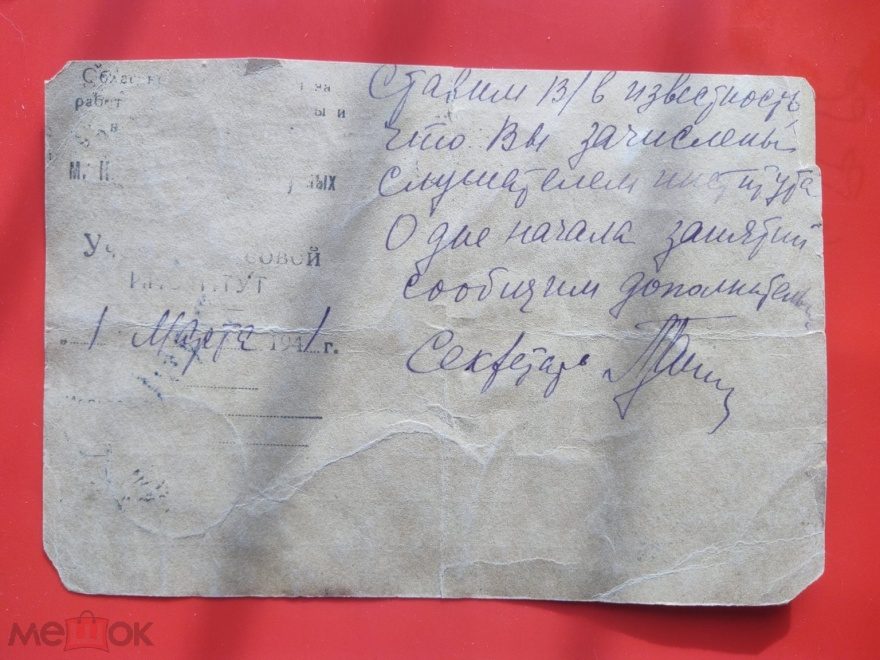 Облас на
работ ы и
М. Н ных
Уч совой
ИНСТИТУТ
"1 Марта 1941 г.
Ставим В/ в известность
что Вы зачислены
слушателем института
О дне начала занятий
сообщим дополнительно
Секретарь
мешок